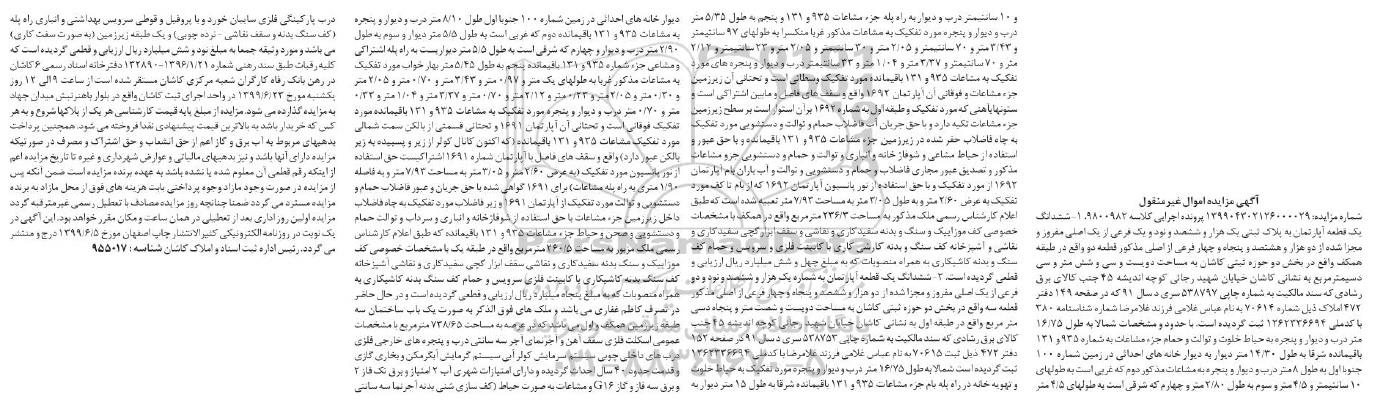 آگهی مزایده اموال غیر منقول
شماره مزایده: ۱۳۹۹۰۴۳۰۲۱۲۶۰۰۰۰۲۹ پرونده اجرایی کلاسه ۹۸۰۰۹۸۲. ۱- ششدانگ
یک قطعه آپارتمان به پلاک ثبتی یک هزار و ششصد و نود و یک فرعی از یک اصلی مفروز و
مجزا شده از دو هزار و هشتصد و پنجاه و چهار فرعی از اصلی مذکور قطعه دو واقع در طبقه
همکف واقع در بخش دو حوزه ثبتی کاشان به مساحت دویست و سی و شش متر و سی
دسیمتر مربع به نشانی کاشان خیابان شهید رجائی کوچه اندیشه ۴۵ جنب کالای برق
رشادی که سند مالکیت به شماره چاپی ۵۳۸۷۹۷ سری د سال ۹۱ که در صفحه ۱۴۹ دفتر
۴۷۲ املاک ذیل شماره ۷۰۶۱۴ به نام عباس غلامی فرزند غلامرضا شماره شناسنامه ۳۸۰
با کدملی ۱۲۶۲۳۳۶۶۹۴ ثبت گردیده است. با حدود و مشخصات شمالا به طول ۱۶/۷۵
متر درب و دیوار و پنجره به حیاط خلوت و توالت و حمام جزء مشاعات به شماره ۹۳۵ و ۱۳۱
باقیمانده شرقا به طول ۱۴/۳۰ متر دیوار به دیوار خانه های احداثی در زمین شماره ۱۰۰
جنوبا اول به طول ۸ متر درب و دیوار و پنجره به مشاعات مذکور دوم که غربی است به طولهای
۱۰ سانتیمتر و ۴/۵ متر و سوم به طول ۲/۸۰ متر و چهارم که شرقی است به طولهای ۴/۵ متر
و ۱۰ سانتیمتر درب و دیوار به راه پله جزء مشاعات ۹۳۵ و ۱۳۱ و پنجم به طول ۵/۳۵ متر
درب و دیوار و پنجره مورد تفکیک به مشاعات مذکور غربا منکسرا به طولهای ۹۷ سانتیمتر
و ۳/۴۳ متر و ۷۰ سانتیمتر و ۲/۰۵ متر و ۳۰ سانتیمتر و ۲/۰۵ متر و ۲۳ سانتیمتر و ۲/۱۲
متر و ۷۰ سانتیمتر و ۳/۳۷ متر و ۱/۰۴ متر و ۳۳ سانتیمتر درب و دیوار و پنجره های مورد
تفکیک به مشاعات ۹۳۵ و ۱۳۱ باقیمانده مورد تفکیک وسطائی است و تحتانی آن زیرزمین
جزء مشاعات و فوقانی آن آپارتمان ۱۶۹۲ واقع و سقف های فاصل و مابین اشتراکی است و
ستونهایأهتی که مورد تفکیک و طبقه اول به شماره ۱۶۹۲ بر آن استوار است بر سطح زیرزمین
جزء مشاعات تکیه دارد و با حق جریان آب فاضلاب حمام و توالت و دستشویی مورد تفکیک
به چاه فاضلاب حفر شده در زیرزمین جزء مشاعات ۹۳۵ و ۱۳۱ باقیمانده و با حق عبور و
استفاده از حیاط مشاعی و شوفاژ خانه و انباری و توالت و حمام و دستشویی جزو مشاعات
مذکور و تصدیق عبور مجاری فاضلاب و حمام و دستشویی و توالت و آب باران بام آپارتمان
۱۶۹۲ از مورد تفکیک و با حق استفاده از نور پانسیون آپارتمان ۱۶۹۲ که از بام تا کف مورد
تفکیک به عرض ۲/۶۰ متر و به طول ۳/۰۵ متر به مساحت ۷/۹۳ متر تعبیه شده است که طبق
اعلام کارشناس رسمی ملک مذکور به مساحت ۲۳۶/۳ متر مربع واقع در همکف با مشخصات
خصوصی کف موزاییک و سنگ بدنه سفیدکاری و نقاشی و سقف ابزار گچی سفید کاری و
نقاشی و آشپزخانه کف سنگ و بدنه کاشی کاری با کابینت فلزی و سرویس و حمام کف
سنگ و بدنه کاشیکاری به همراه منصوبات که به مبلغ چهل و شش میلیارد ریال ارزیابی و
قطعی گردیده است. ۲- ششدانگ یک قطعه آپارتمان به شماره یک هزار و ششصد و نود و دو
فرعی از یک اصلی مفروز و مجزا شده از دو هزار و هشتصد و پنجاه و چهار فرعی از اصلی مذکور
قطعه سه واقع در بخش دو حوزه ثبتی کاشان به مساحت دویست و شصت متر و پنجاه دسی
متر مربع واقع در طبقه اول به نشانی کاشان خیابان شهید رجایی کوچه اندیشه ۴۵ جنب
کالای برق رشادی که سند مالکیت به شماره چاپی ۵۳۸۷۵۳ سری دسال ۹۱ در صفحه ۱۵۲
دفتر ۴۷۲ ذیل ثبت ۷۰۶۱۵ به نام عباس غلامی فرزند غلامرضا با کدملی ۱۲۶۲۳۳۶۶۹۴
ثبت گردیده است شمالا به طول ۱۶/۷۵ متر درب و دیوار و پنجره مورد تفکیک به حیاط خلوت
و تهویه خانه در راه پله بام جزء مشاعات ۹۳۵ و ۱۳۱ باقیمانده شرقا به طول ۱۵ متر دیوار به
دیوار خانه های احداثی در زمین شماره ۱۰۰ جنوبا اول طول ۸/۱۰ متر درب و دیوار و پنجره
به مشاعات ۹۳۵ و ۱۳۱ باقیمانده دوم که غربی است به طول ۵/۵ متر دیوار و سوم به طول
۲/۹۰ متر درب و دیوار و چهارم که شرقی است به طول ۵/۵ متر دیواریست به راه پله اشتراکی
و مشاعی جزء شماره ۹۳۵ و ۱۳۱ باقیمانده پنجم به طول ۵/۴۵ متر بهار خواب مورد تفکیک
به مشاعات مذکور غربا به طولهای یک متر و ۰/۹۷ متر و ۳/۴۳ متر و ۰/۷۰ متر و ۲/۰۵ متر
و ۰/۳۰ متر و ۲/۰۵ متر و ۰/۳۳ متر و ۲/۱۲ متر و ۰/۷۰ متر و ۳/۳۷ متر و ۱/۰۴ متر و ۰/۳۳
متر و ۰/۷۰ متر درب و دیوار و پنجره مورد تفکیک به مشاعات ۹۳۵ و ۱۳۱ باقیمانده مورد
تفکیک فوقانی است و تحتانی آن آپارتمان ۱۶۹۱ و تحتانی قسمتی از بالکن سمت شمالی
مورد تفکیک مشاعات ۹۳۵ و ۱۳۱ باقیمانده (که اکنون کانال کولر از زیر و پسیده به زیر
بالکن عبور دارد) واقع و سقف های فاصل با آپارتمان شماره ۱۶۹۱ اشتراکیست حق استفاده
از نور پانسیون مورد تفکیک (به عرض ۲/۶۰ متر و ۳/۰۵ متر به مساحت ۷/۹۳ متر و به فاصله
۱/۹۰ متری به راه پله مشاعات) برای ۱۶۹۱ گواهی شده با حق جریان و عبور فاضلاب حمام و
دستشویی و توالت مورد تفکیک از آپارتمان ۱۶۹۱ و زیر فاضلاب مورد تفکیک به چاه فاضلاب
داخل زیرزمین جزء مشاعات با حق استفاده از شوفاژ خانه و انباری و سرداب و توالت حمام
و دستشویی و صحن و حیاط جزء مشاعات ۹۳۵ و ۱۳۱ باقیمانده که طبق اعلام کارشناس
رسمی ملک مزبور به مساحت ۲۶۰/۵ متر مربع واقع در طبقه یک با مشخصات خصوصی کف
موزاییک و سنگ بدنه سفیدکاری و نقاشی سقف ابزار گچی سفیدکاری و نقاشی آشپزخانه
کف سنگ بدنه کاشیکاری با کابینت فلزی سرویس و حمام کف سنگ بدنه کاشیکاری به
همراه منصوبات که به مبلغ پنجاه میلیارد ریال ارزیابی و قطعی گردیده است و در حال حاضر
در تصرف کاظم غفاری می باشد و ملک های فوق الذکر به صورت یک باب ساختمان سه
طبقه زیرزمین همکف و اول می باشد که در عرصه به مساحت ۷۳۸/۶۵ متر مربع با مشخصات
عمومی اسکلت فلزی سقف آهن و آجر نمای آجر سه سانتی درب و پنجره های خارجی فلزی
درب های داخلی چوبی سیستم سرمایش کولر آبی سیستم گرمایش آبگرمکن و بخاری گازی
و قدمت حدود ۴۰ سال احداث گردیده و دارای امتیازات شهری آب ۲ امتیاز و برق تک فاز ۲
و برق سه فاز و گاز G16 و مشاعات به صورت حیاط (کف سازی شنی بدنه آجر نما سه سانتی
درب پارکینگی فلزی سایبان خورد و با پروفیل و قوطی سرویس بهداشتی و انباری راه پله
(کف سنگ بدنه و سقف نقاشی - نرده چوبی) و یک طبقه زیرزمین (به صورت سفت کاری)
می باشد و مورد وثیقه جمعا به مبلغ نود و شش میلیارد ریال ارزیابی و قطعی گردیده است که
کلیه رقبات طبق سند رهنی شماره ۱۳۹۶/۱/۲۱-۱۳۲۸۹۰ دفترخانه اسناد رسمی ۶ کاشان
در رهن بانک رفاه کارگران شعبه مرکزی کاشان مستقر شده است از ساعت ۹ الی ۱۲ روز
یکشنبه مورخ ۱۳۹۹/۶/۲۳ در واحد اجرای ثبت کاشان واقع در بلوار باهنر نبش میدان جهاد
به مزایده گذارده می شود. مزایده از مبلغ پایه قیمت کارشناسی هر یک از پلاکها شروع و به هر
کس که خریدار باشد به بالاترین قیمت پیشنهادی نقدا فروخته می شود. همچنین پرداخت
بدهیهای مربوط به آب برق و گاز اعم از حق انشعاب و حق اشتراک و مصرف در صورتیکه
مزایده دارای آنها باشد و نیز بدهیهای مالیاتی و عوارض شهرداری و غیره تا تاریخ مزایده اعم
از اینکه رقم قطعی آن معلوم شده یا نشده باشد به عهده برنده مزایده است ضمن آنکه پس
از مزایده در صورت وجود مازاد وجوه پرداختی بابت هزینه های فوق از محل مازاد به برنده
مزایده مسترد می گردد ضمنا چنانچه روز مزایده مصادف با تعطیل رسمی غیر مترقبه گردد
مزایده اولین روز اداری بعد از تعطیلی در همان ساعت و مکان مقرر خواهد بود. این آگهی در
یک نوبت در روزنامه الکترونیکی کثیر الانتشار چاپ اصفهان مورخ ۱۳۹۹/۶/۵ درج و منتشر
می گردد. رئیس اداره ثبت اسناد و املاک کاشان شناسه : ۹۵۵۰۱۷